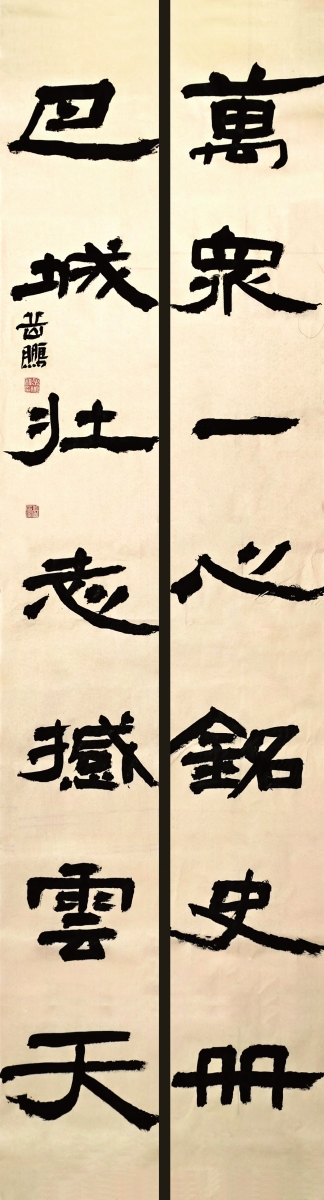 萬衆一心銘史册
巴城壯志撼雲天
岳鵬